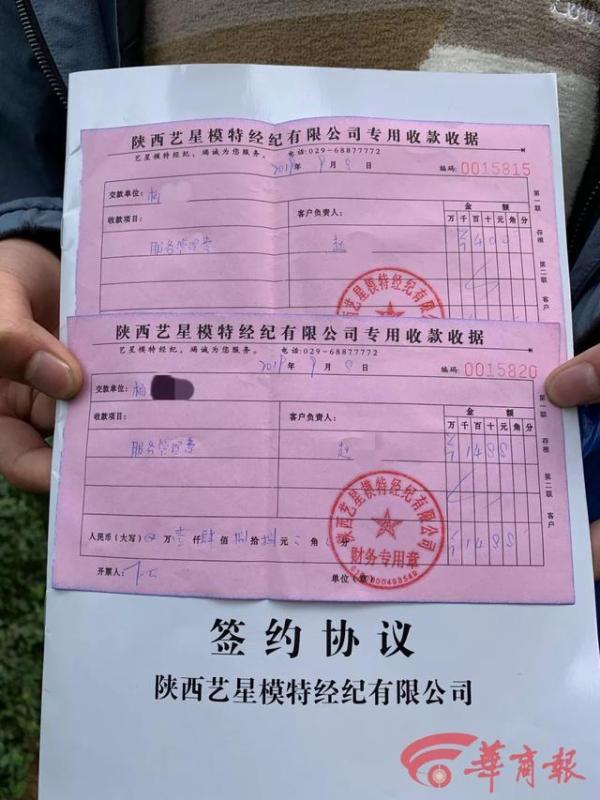 陕西艺星模特经纪有限公司专用收款收据
艺星模特经纪，竭诚为您服务。 电话:029-68877772
2019年9月8日 编码: 0015815
交款单位: 杨
收款项目: 客户负责人: 金额
万千百十元角分
服务管理费 赵
第一联 存根 第二联 客户
陕西艺星模特经纪有限公司专用收款收据
艺星模特经纪，竭诚为您服务。 电话:029-68877772
2019年9月8日 编码: 0015820
交款单位: 杨
收款项目: 客户负责人: 金额
万千百十元角分
服务管理费 赵 1488
第一联 存根 第二联 客户
陕西艺星模特经纪有限公司
财务专用章
人民币(大写) 万壹仟肆佰捌拾捌元 角 分 1488
开票人: 单位(章)
签约协议
陕西艺星模特经纪有限公司
華商報